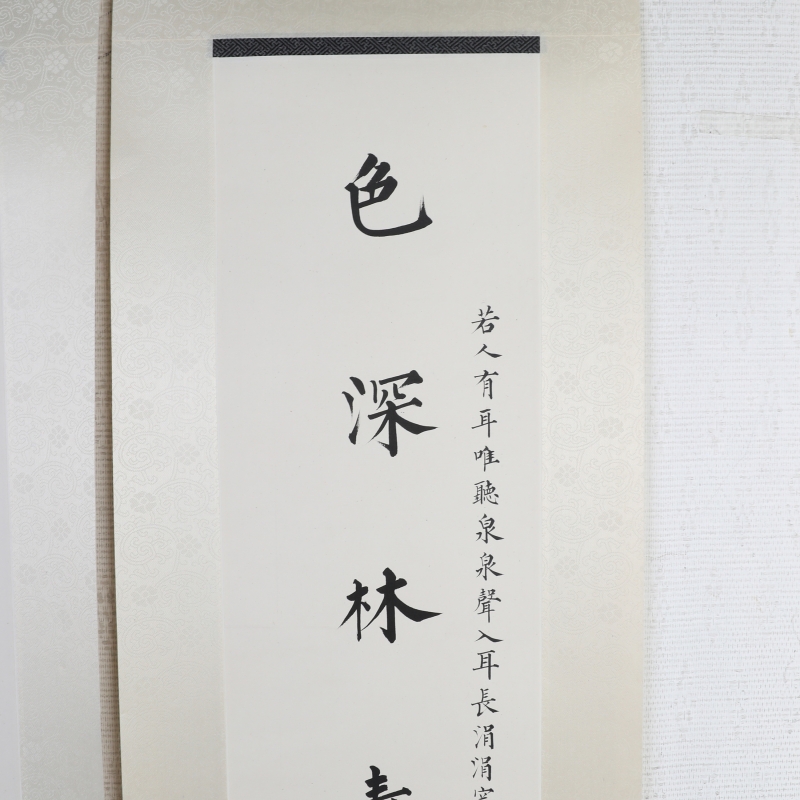 若人有耳唯聽泉泉聲入耳長涓涓
色深林